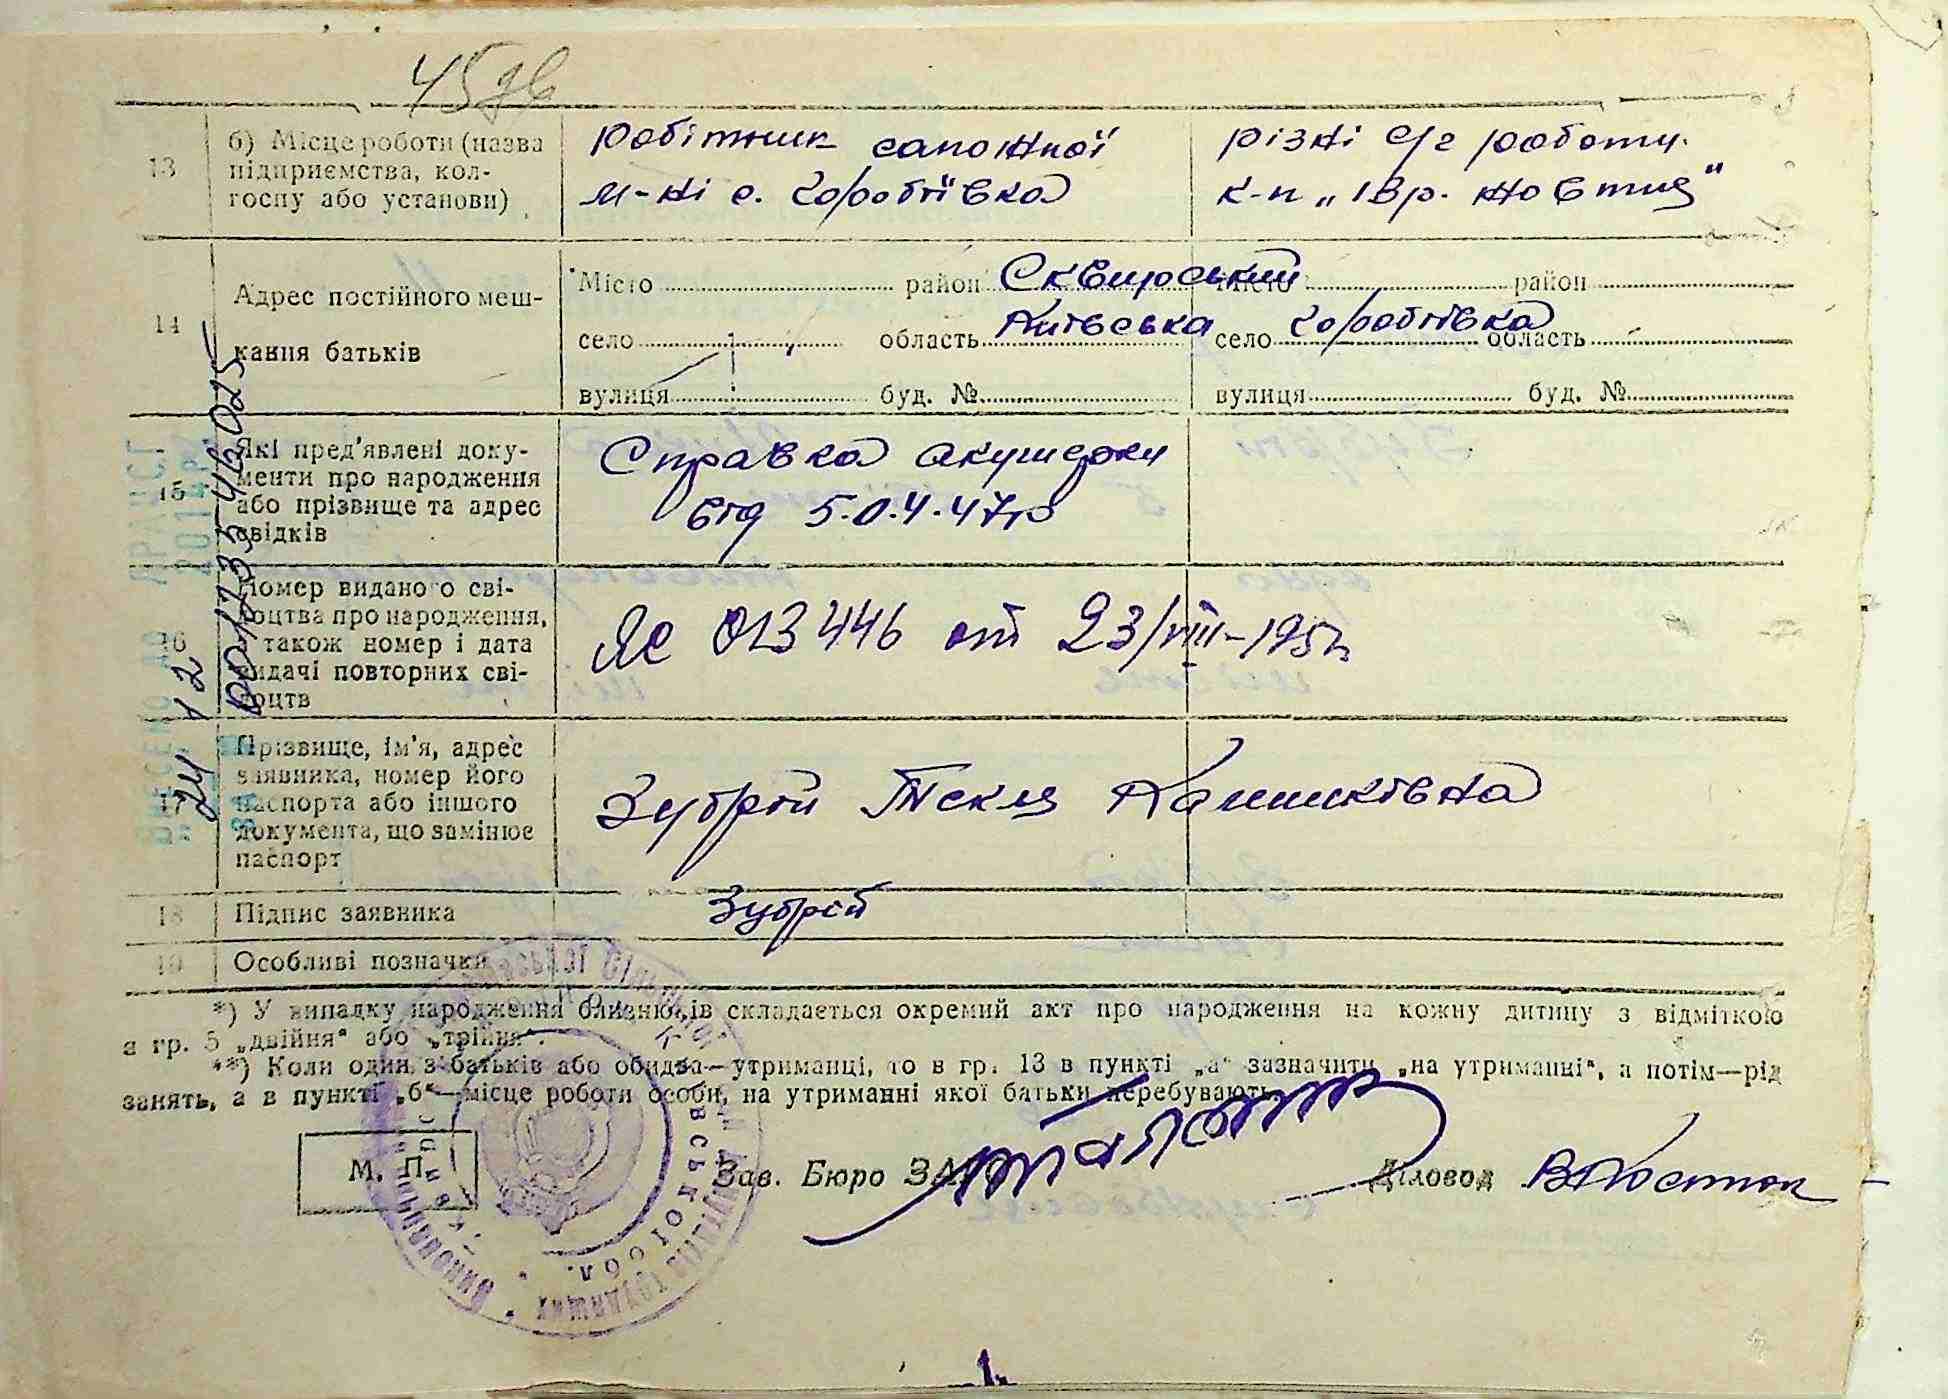 45 зв
13 б) Місце роботи (назва підприємства, кол-госпу або установи)
Робітник сапожної
м-ні с. Коробіївка
різні с/г роботи
к-п „1 Вр. Жовтня"
14 Адрес постійного меш-
кання батьків
Місто район Сквирський Місто район
село область Київська село Коробіївка область
вулиця буд. № вулиця буд. №
15 Які пред'явлені доку-
менти про народження
або прізвище та адрес
свідків
Справка акушерки
від 5.04.47 р
16 Номер виданого сві-
доцтва про народження,
а також номер і дата
видачі повторних сві-
доцтв
ЯС 013446 от 23/VIII-195
17 Прізвище, ім'я, адрес
заявника, номер його
паспорта або іншого
документа, що замінює
паспорт
Зубрій Текля
18 Підпис заявника Зубрій
19 Особливі позначки
*) У випадку народження близнюків складається окремий акт про народження на кожну дитину з відміткою
в гр. 5 „двійня" або „трійня".
**) Коли один з батьків або обидва—утриманці, то в гр. 13 в пункті „а" зазначити „на утриманні", а потім—рід
занять, а в пункті „б"—місце роботи особи, на утриманні якої батьки перебувають.
М. П. Зав. Бюро ЗАГС Діловод
ВНЕСЕНО ДО
24 12
00173546025